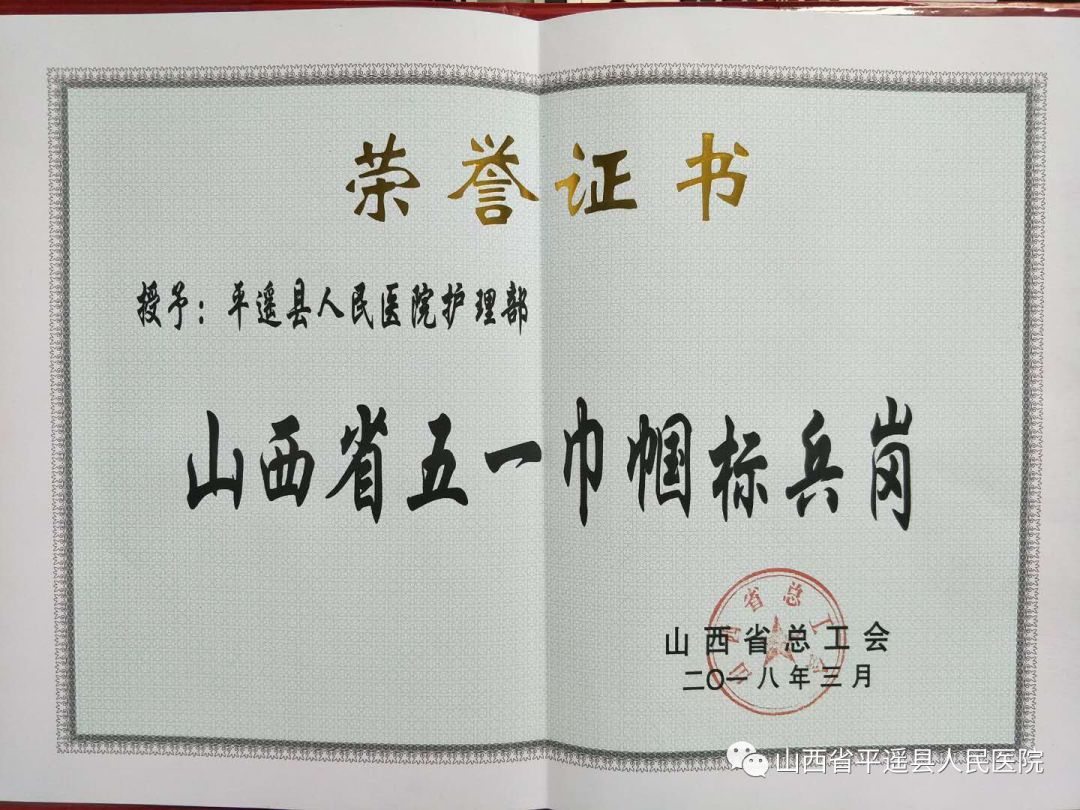 荣誉证书
授予：平遥县人民医院护理部
山西省五一巾帼标兵岗
山西省总工会
山西省总工会
二〇一八年三月
山西省平遥县人民医院